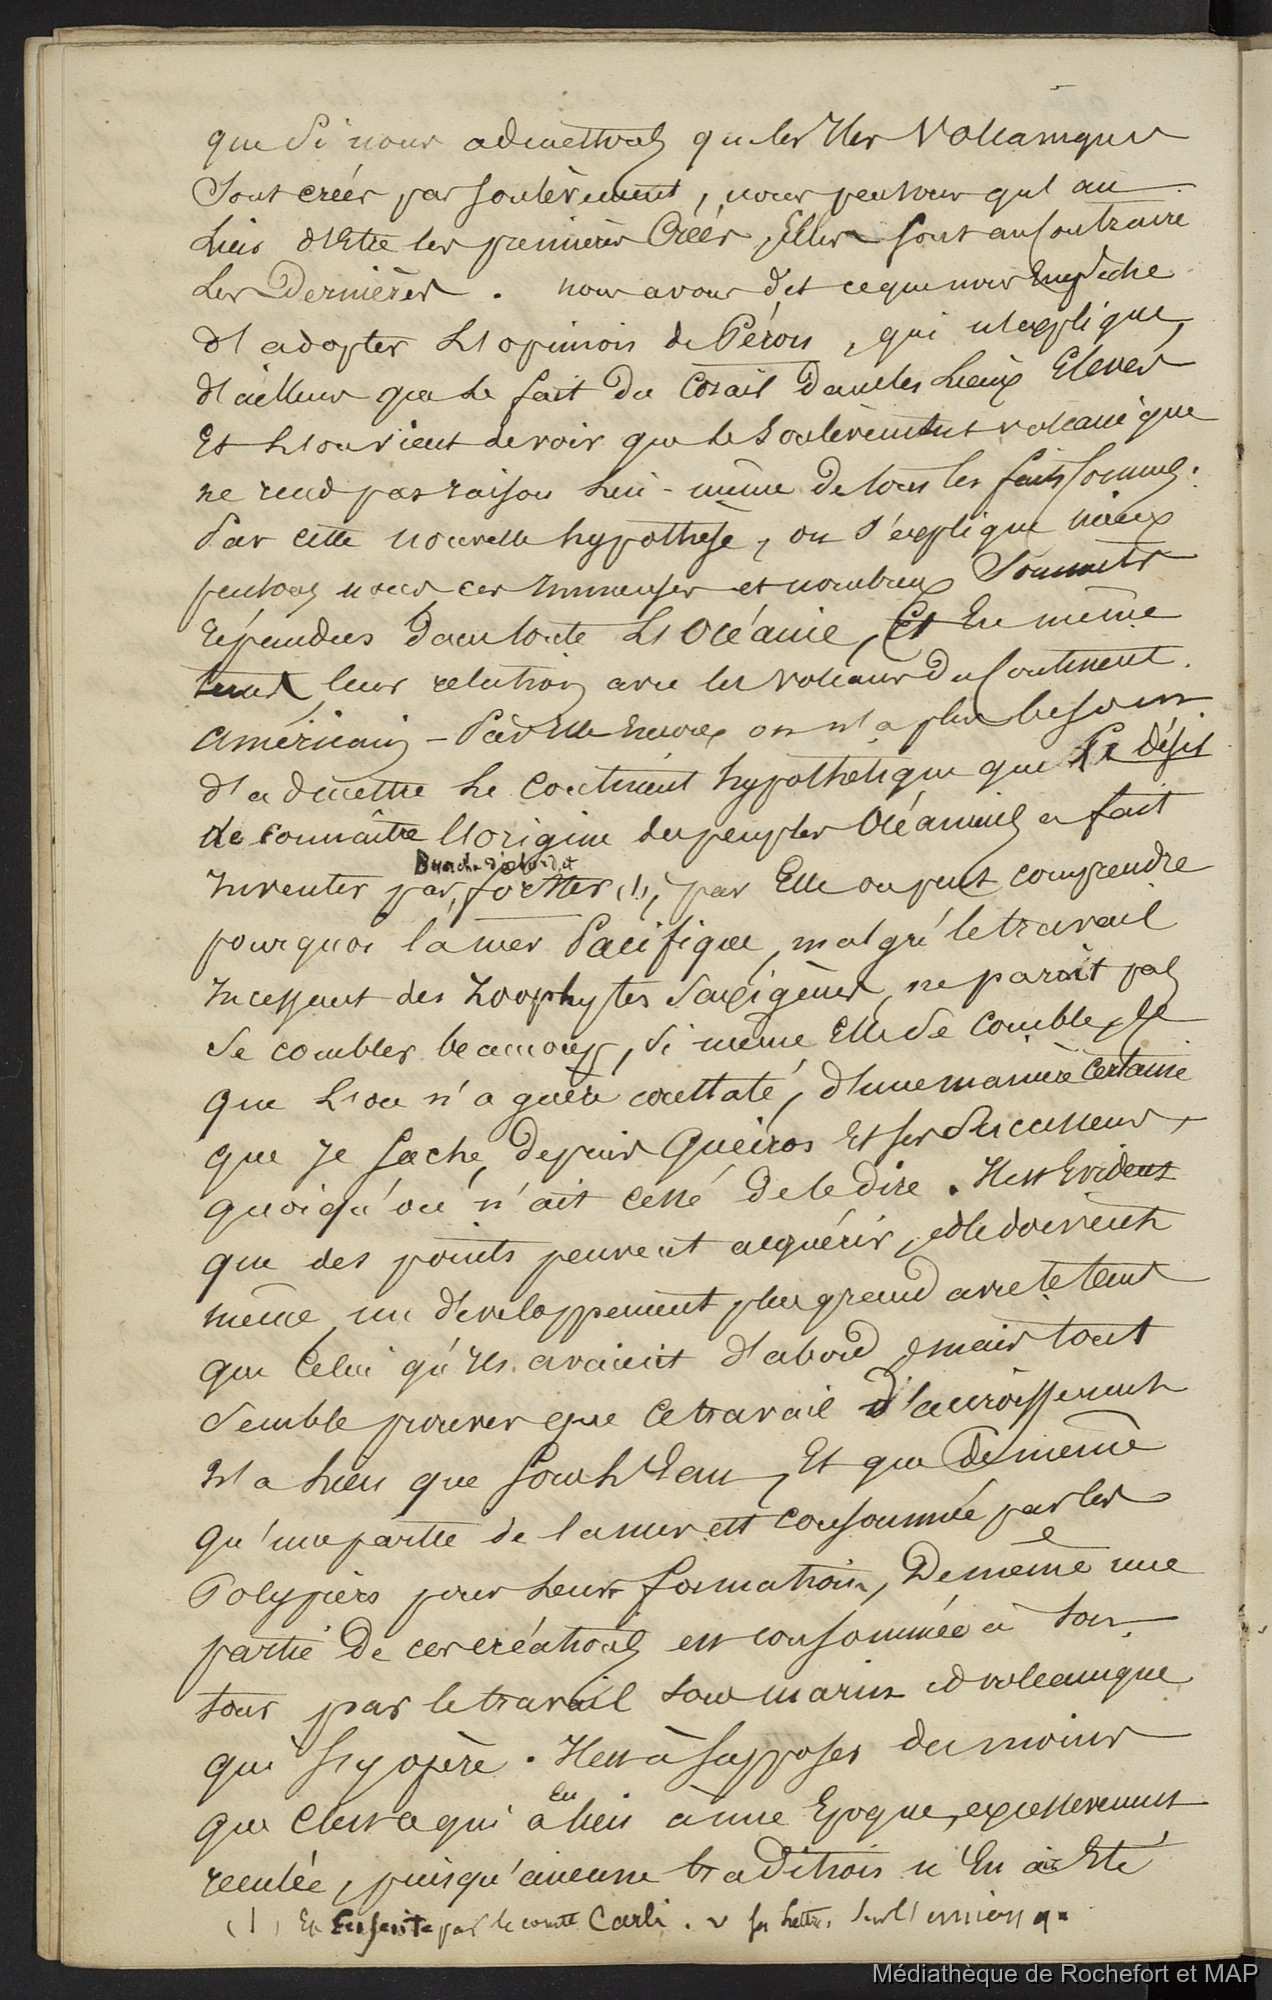 que si nous admettons que les Iles Volcaniques
sont créés par soulèvement, nous pensons qu'au
lieu d'Etre les premières Créés, Elles sont au Contraire
Les Dernières. nous avons dit ce que nous Empêche
d'adopter L'opinion de Péron, qui n'explique
d'ailleurs que le fait du Corail dans les Lieux Elevés
Et L'on vient de voir que le Soulèvement volcanique
ne rend pas raison lui-même de tous les faits Connus.
Par cette nouvelle hypothèse, on s'explique mieux
pensons nous ces Immenses et nombreux Sommets
répandus dans toute L'Océanie, Et En même
tems leur relation avec les volcans du Continent
Américain – Par Elle Encore on n'a plus besoin
d'admettre Le Continent hypothétique que Le désir
de connaître L'origine des peuples Océaniens a fait
Buache d'abord, et
Inventer par, forster (1), par Elle on peut comprendre
pourquoi la mer Pacifique, malgré le travail
Incessant des Zoophytes Saxigènes, ne paroit pas
se combler beaucoup, si même Elle se comble, Ce
que L'on n'a guère constaté, d'une manière certaine
que Je sache, depuis Queiros Et ses Successeurs,
quoiqu'on n'ait cessé de le dire. Il est Evident
que des points peuvent acquérir, et doivent
même, un développement plus grand avec le tems
que Celui qu'Ils avaient d'abord, mais tout
semble prouver que Ce travail d'accroissement
N'a lieu que sous L'Eau, Et que de même
qu'une partie de la mer est Consommée par les
Polypiers pour leur formation, de même une
partie de ces créations est consommée à son
tour par le travail sous marin et volcanique
qui s'y opère. Il est à supposer du moins
que C'est ce qui a Eu lieu à une Epoque, excessivement
reculée, puisqu'aucune tradition n'En a Eté
(1) Et Ensuite par le comte Carli. v ses Lettres sur l'
Médiathèque de Rochefort et MAP